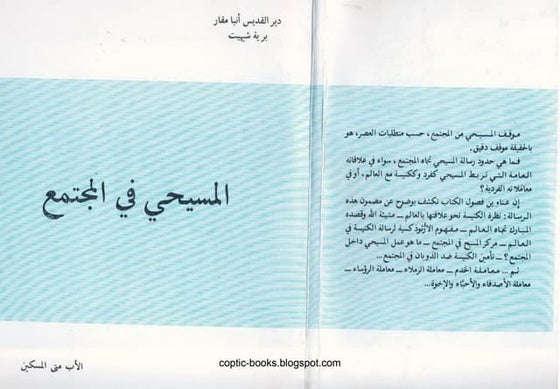 دير القديس أنبا مقار
برية شيهيت
المسيحي في المجتمع
الأب متى المسكين
موقف المسيحي من المجتمع، حسب متطلبات العصر، هو
بالحقيقة موقف دقيق.
فما هي حدود رسالة المسيحي تجاه المجتمع، سواء في علاقاته
العامة التي تربط المسيحي كفرد وككنيسة مع العالم، أو في
معاملاته الفردية؟
إن عناوين فصول الكتاب تكشف بوضوح عن مضمون هذه
الرسالة: نظرة الكنيسة نحو علاقتها بالعالم ــ مشيئة الله وقصده
المبارك تجاه العالم ــ مفهوم الأرثوذكسية لرسالة الكنيسة في
العالم ــ مركز المسيح في المجتمع ــ ما هو عمل المسيحي داخل
المجتمع؟ ــ تأمين الكنيسة ضد الذوبان في المجتمع...
ثم ... معاملة الخدم ــ معاملة الزملاء ــ معاملة الرؤساء ــ
معاملة الأصدقاء والأحباء والإخوة...
coptic-books.blogspot.com